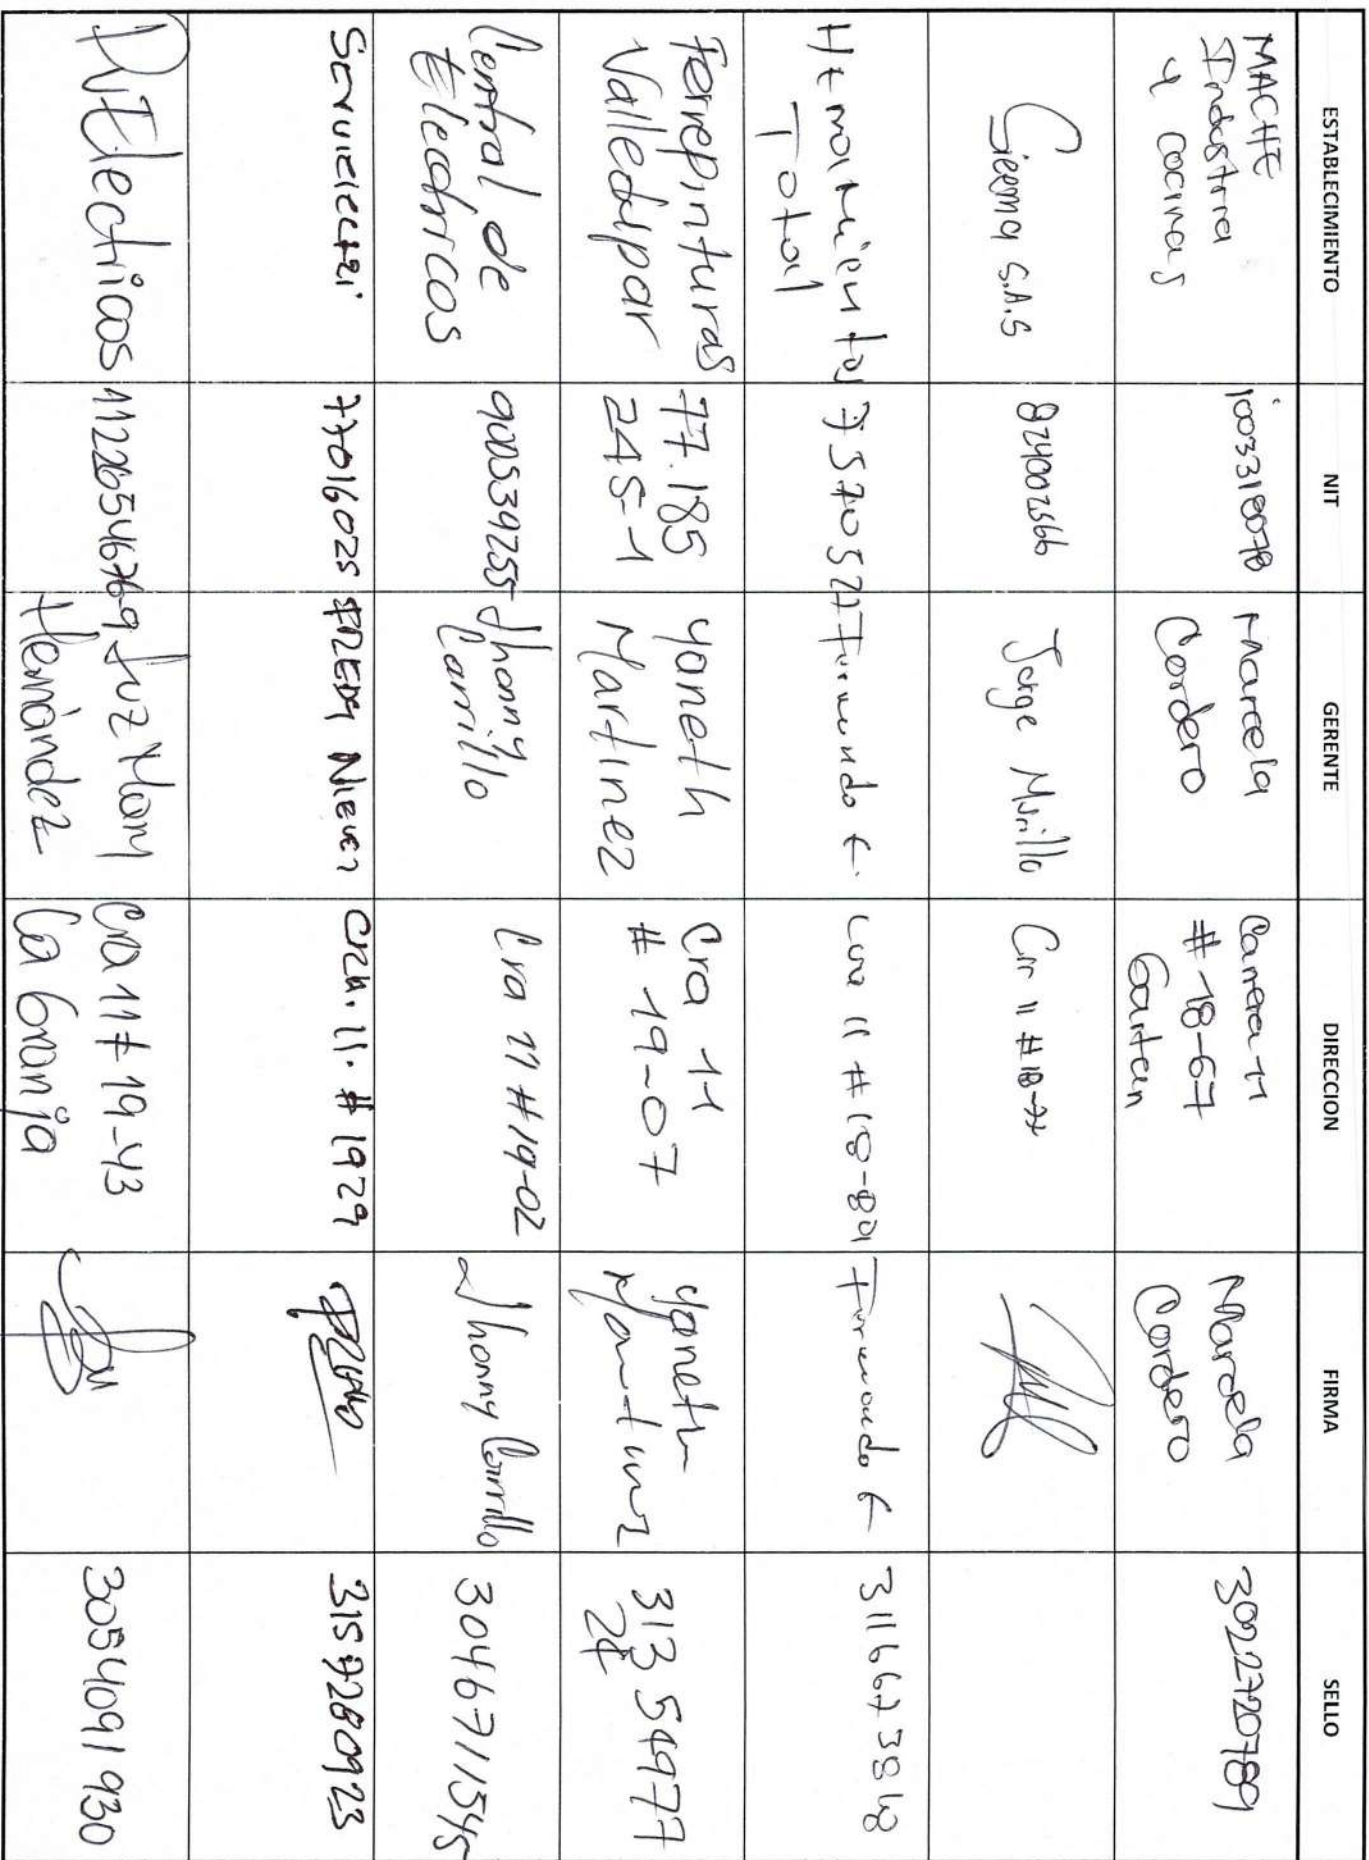 ESTABLECIMIENTO NIT GERENTE DIRECCION FIRMA SELLO
MACHE
Industria
y cocinas
1003318078
Marcela
Cordero
Carrera 11
# 18-67
Gaitan
Marcela
Cordero
3022720789
Sieema S.A.S
824002566
Jorge Murillo
Crr 11 # 18-77
Herramientas
Total
Fernando C.
Cra 11 # 18-801
Fernando C
3116673848
Ferrepinturas
Valledupar
77.185
245-1
yaneth
Martinez
Cra 11
# 19-07
yaneth
Martinez
313 54977
24
Central de
Electricos
900539255
Jhonny
Carrillo
Cra 11 # 19-02
Jhonny Carrillo
3046711545
77016025
Cra. 11. # 1929
3157280923
D'Electricos
Luz Mary
Hernández
Cra 11 # 19-43
La Granja
3054091930